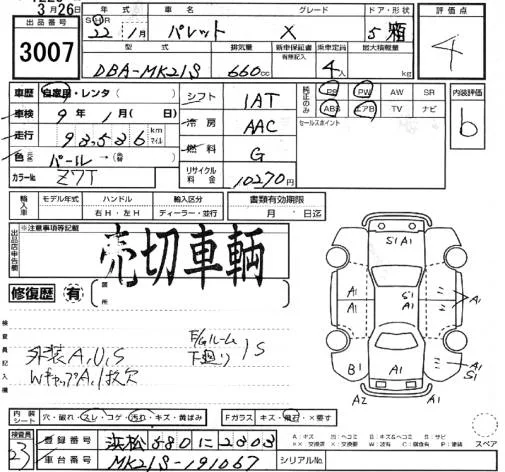 3月26日
年式 車名 グレード ドア・形状 評価点
出品番号 3007
SHR 22年 1月 パレット X 5 箱 4
型式 排気量 新車保証書 有無記入 乗車定員 最大積載量
DBA-MK21S 660cc 4人 kg
車歴 自家用・レンタ( ) シフト 1AT 純正のみ PS PW AW SR 内装評価
車検 9年 1月( 日) 冷房 AAC ABS エアB TV ナビ b
走行 93,536 km マイル 燃料 G セールスポイント
色 元色 パール →(替 ) リサイクル料金 10270円
カラーNo. Z7T
輸入車 モデル年式 ハンドル 輸入区分 書類有効期限
右H・左H ディーラー・並行 月 日迄
出品店申告欄 ※注意事項等記載
売切車輌
修復歴 有 箇所
検査員記入欄
外装A,U,S F/Gルーム 下廻り S
WキャップA,1枚欠
S1 A1
A1 S1 A1 A1
A1
B1 A1 A1 S1
A2 A1
内装シート 穴・破れ・スレ・コゲ・汚れ・キズ・黄ばみ Fガラス キズ・飛石・×要す
A:キズ U:ヘコミ B:キズ&ヘコミ S:サビ
スペア
検査員 23 登録番号 浜松 580 に 2303
車台番号 MK21S-191067 シリアルNo.